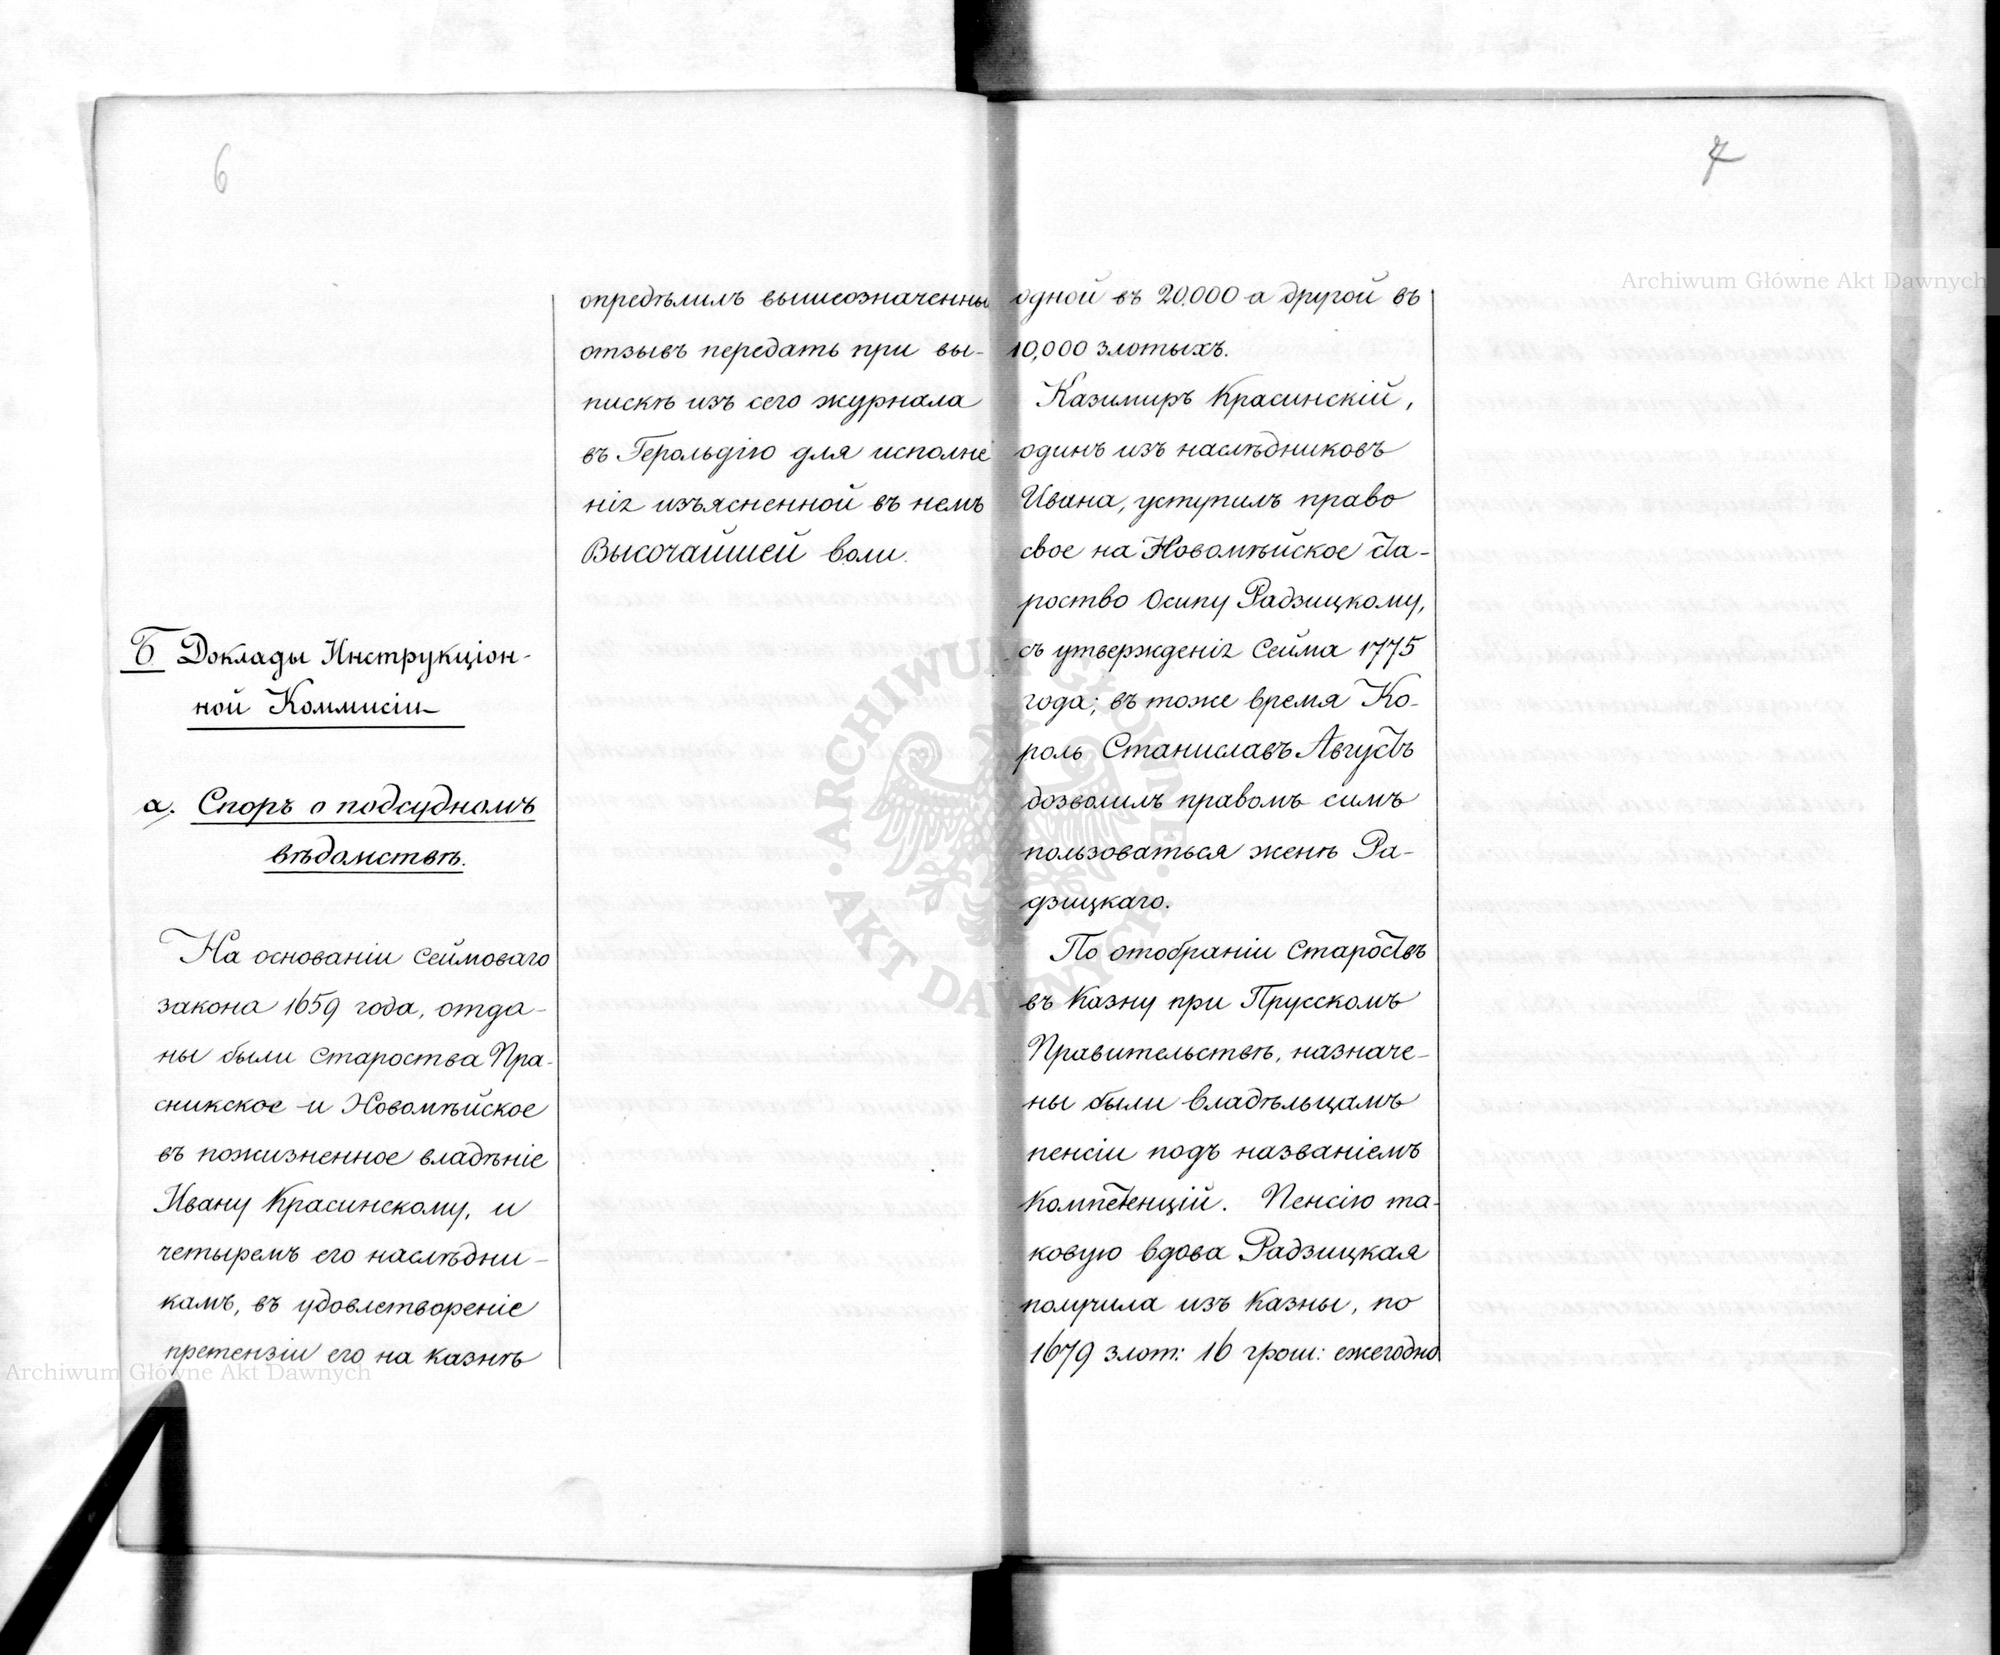 6
опредѣлилъ вышеозначенны
отзывъ передать при вы-
пискѣ изъ сего журнала
въ Герольдію для исполне
нія изъясненной въ немъ
Высочайшей воли.
Б Доклады Инструкціон-
ной Коммисіи
а. Споръ о подсудномъ
вѣдомствѣ.
На основаніи Сеймоваго
закона 1659 года, отда-
ны были Староства Пра-
сникское и Новомѣйское
въ пожизненное владѣніе
Ивану Красинскому, и
четыремъ его наслѣдни-
камъ, въ удовлетвореніе
претензіи его на казнѣ
7
одной въ 20.000 а другой въ
10,000 злотыхъ.
Казимиръ Красинскій,
одинъ изъ наслѣдниковъ
Ивана, уступилъ право
свое на Новомѣйское Ста-
роство Осипу Радзицкому,
съ утвержденія Сейма 1775
года; въ тоже время Ко-
роль Станиславъ Августъ
дозволилъ правомъ симъ
пользоваться женѣ Ра-
дзицкаго.
По отобраніи Староствъ
въ Казну при Прусскомъ
Правительствѣ, назначе-
ны были владѣльцамъ
пенсіи подъ названіемъ
Компетенцій. Пенсію та-
ковую вдова Радзицкая
получила изъ Казны, по
1679 злот: 16 грош: ежегодно
Archiwum Główne Akt Dawnych
Archiwum Główne Akt Dawnych
ARCHIWUM GŁÓWNE
AKT DAWNYCH